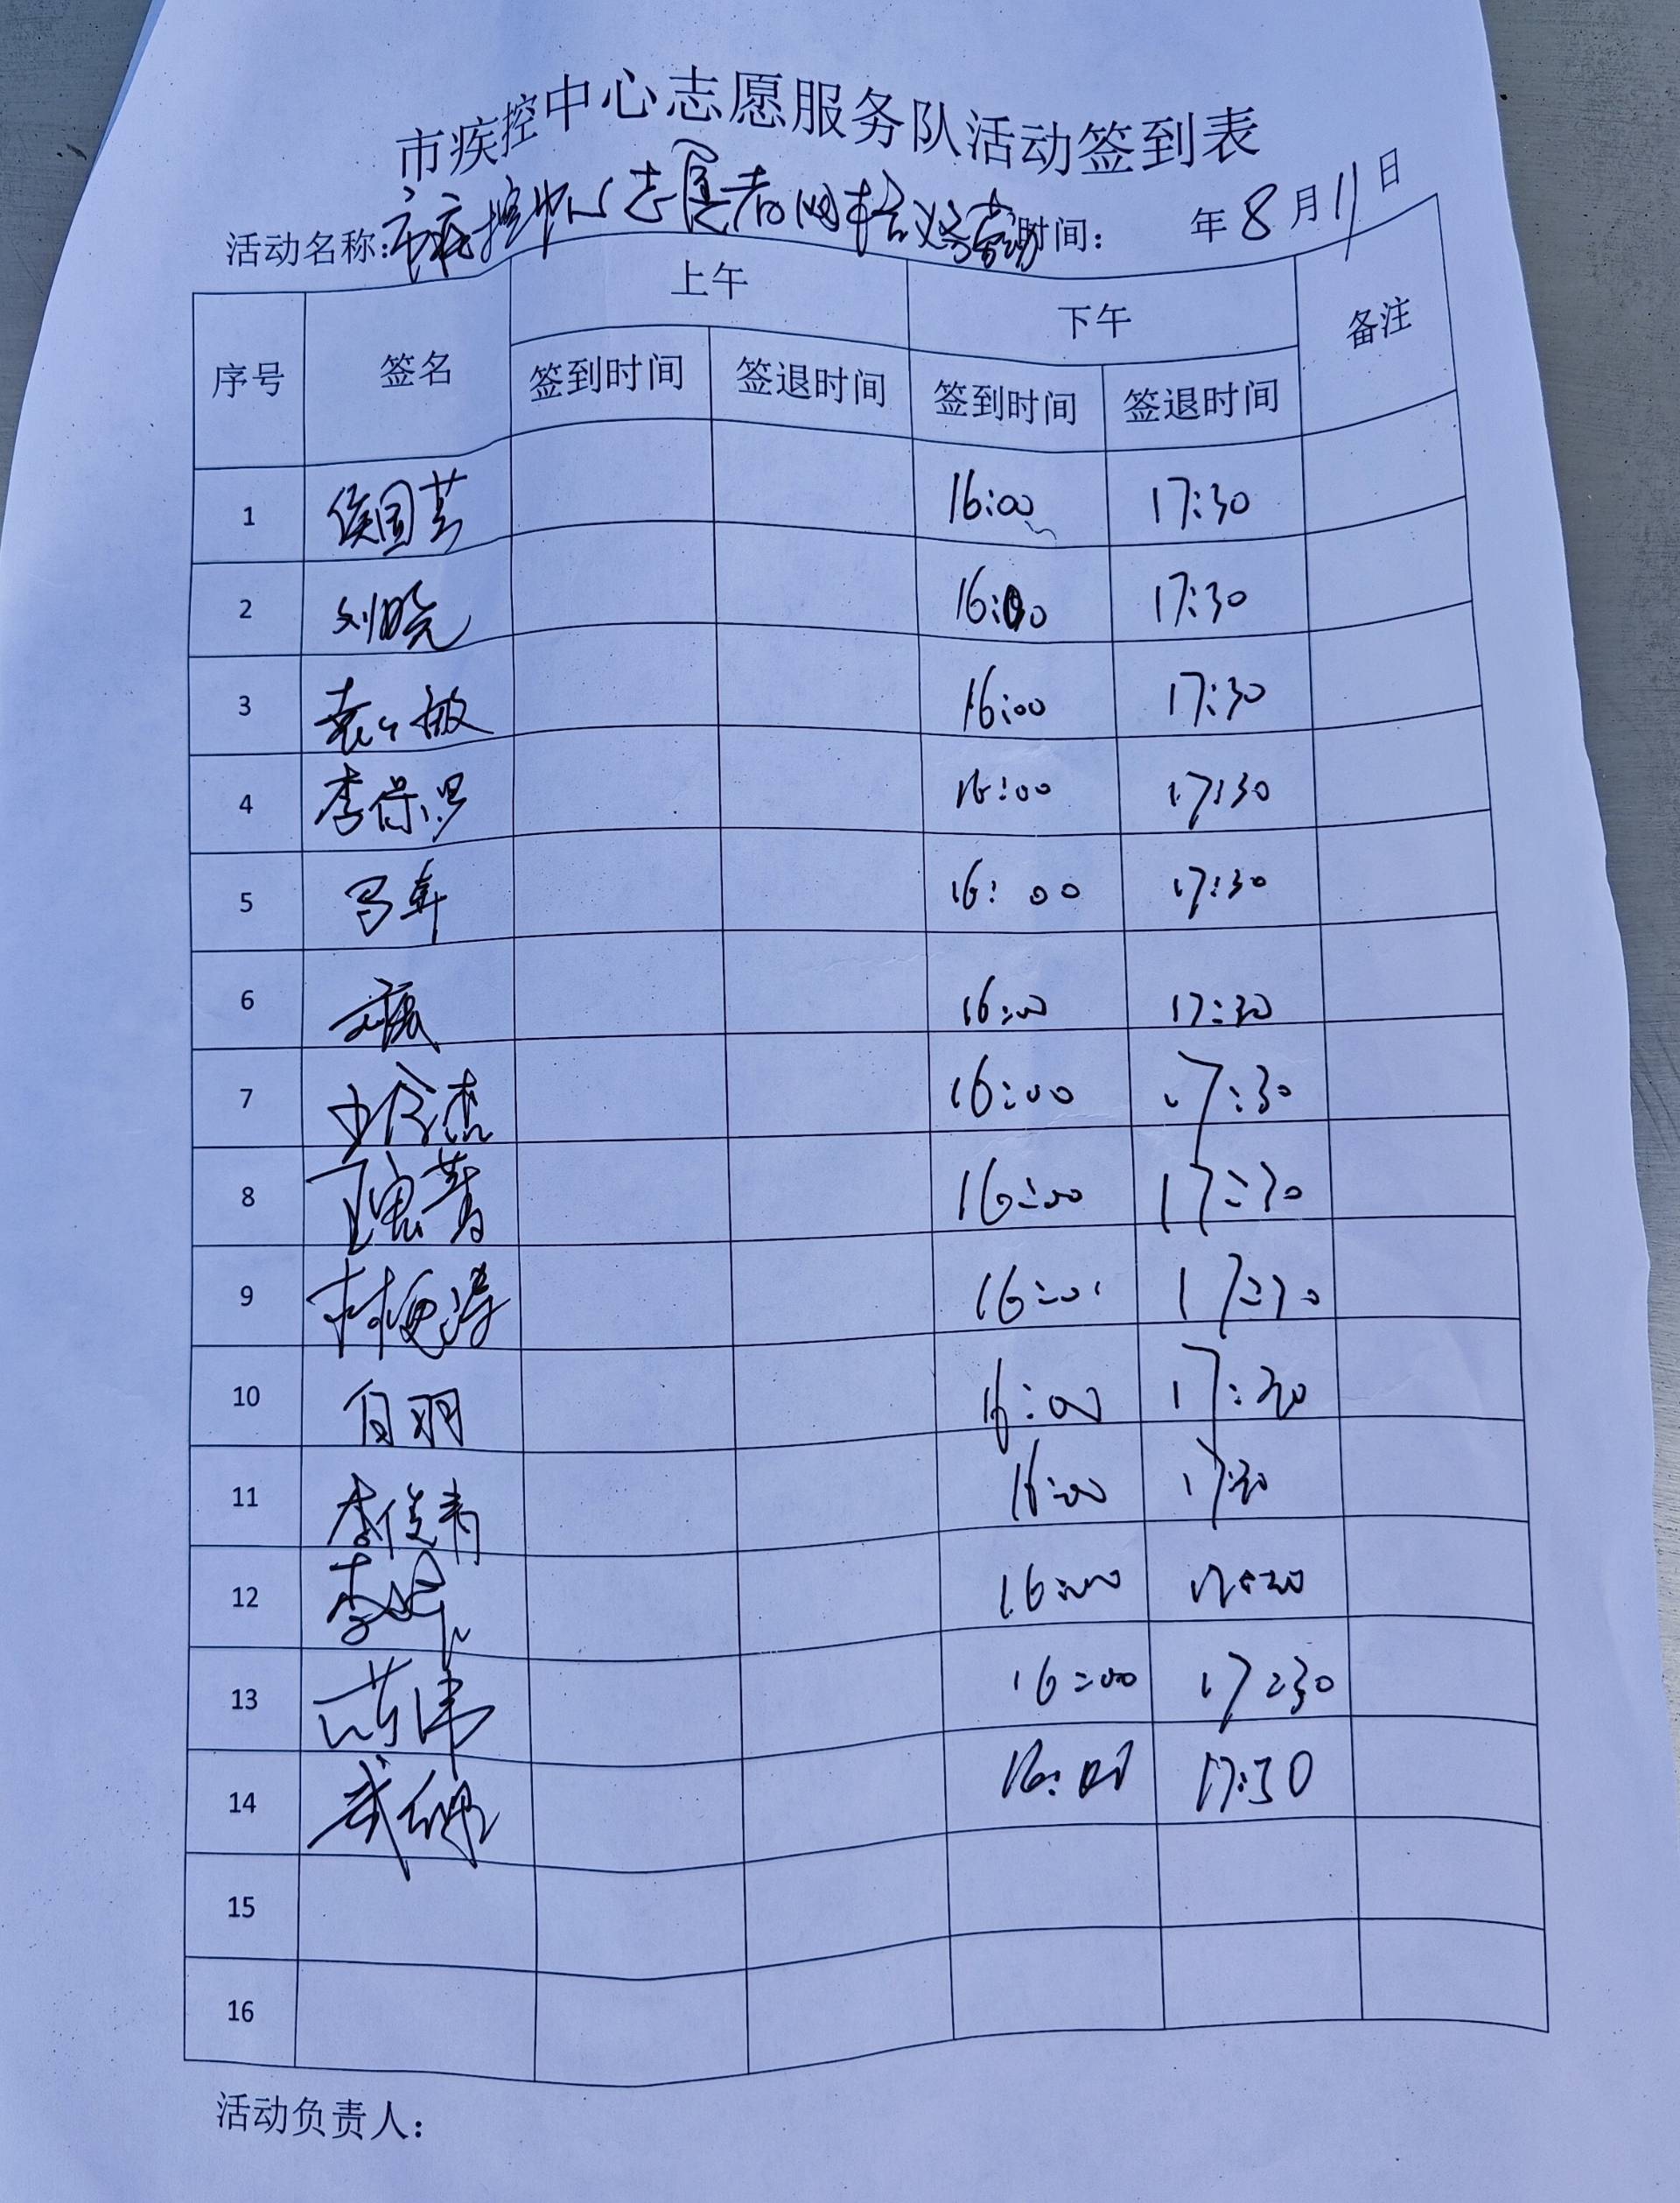 市疾控中心志愿服务队活动签到表
活动名称:市疾控中心志愿者网格义务劳动 时间: 年8月11日
序号 签名 上午 下午 备注
签到时间 签退时间 签到时间 签退时间
1 侯国芸 16:00 17:30
2 刘晓 16:00 17:30
3 袁敏 16:00 17:30
4 李保 16:00 17:30
5 16:00 17:30
6 16:00 17:30
7 16:00 17:30
8 16:00 17:30
9 林 涛 16:00 17:30
10 白羽 16:00 17:30
11 李俊青 16:00 17:30
12 李 16:00 17:30
13 16:00 17:30
14 武 16:00 17:30
15
16
活动负责人: